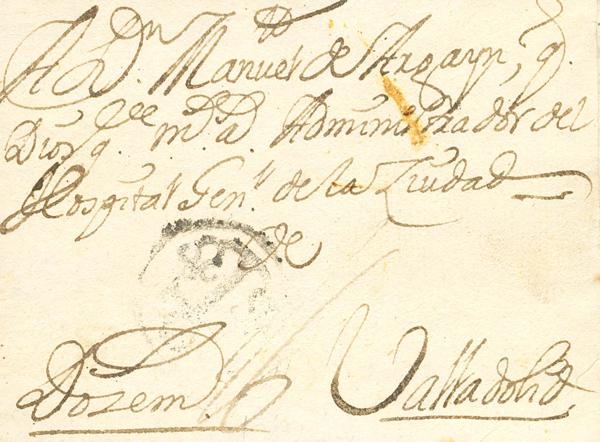 A Dn. Manuel de Argayn, q.
Dios gee. ms. as. Administrador del
Hospital Genl. de la Ziudad
de
Dozem Valladolid